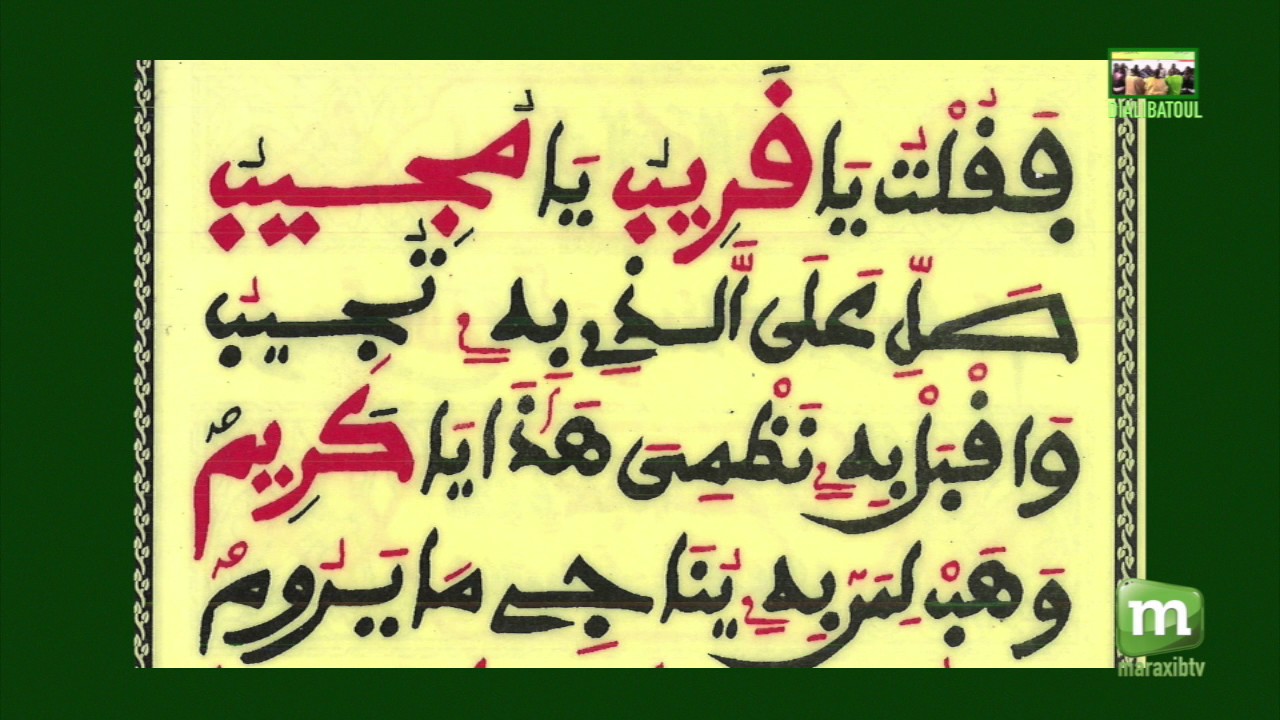 فَقُلْتُ يَا قَرِيبُ يَا مُجِيبُ
صَلِّ عَلَى الَّذِي بِهِ تُجِيبُ
وَاقْبَلْ بِهِ نَظْمِي هَذَا يَا كَرِيمُ
وَهَبْ لِمَن بِهِ يُنَاجِي مَا يَرُومُ
DIALIBATOUL
m
maraxibtv